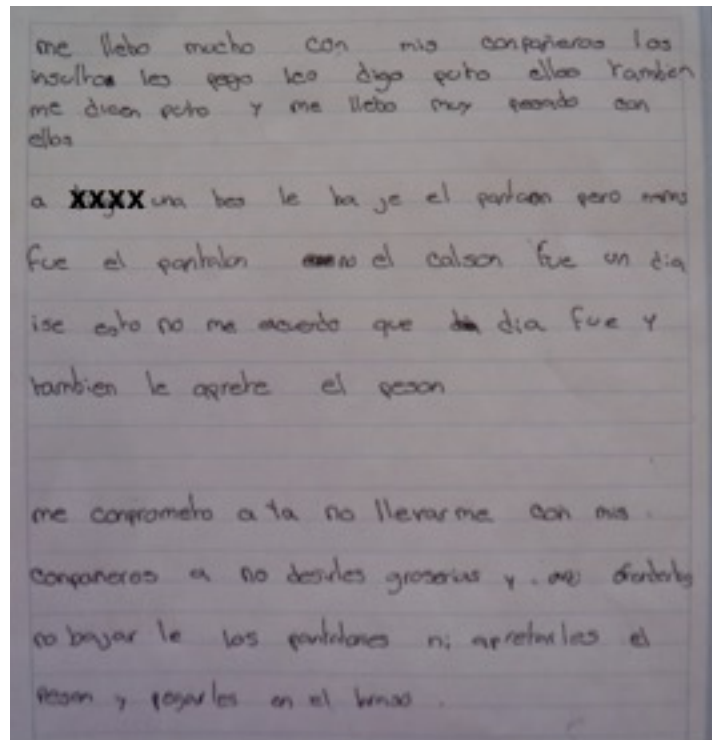 me llebo mucho con mis conpañeros los
insultos les pego les digo puto ellos tambien
me dicen puto y me llebo muy pesado con
ellos
a XXXX una bes le ba je el pantaon pero
fue el pantalon no el calson fue un dia
ise esto no me acuerdo que dia fue y
tambien le aprete el peson
me conprometo a ya no llevarme con mis
conpañeros a no desirles groserias y ofenderlos
no bajar le los pantalones ni apretarles el
peson y pegarles en el braso.